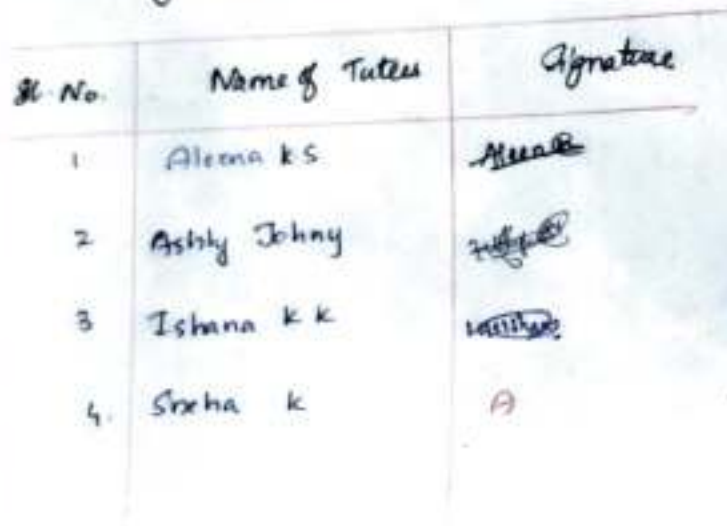 Sl. No. Name of Tutees Signature
1 Aleena k s
2 Ashly Johny
3 Ishana k k
4. Sneha k A